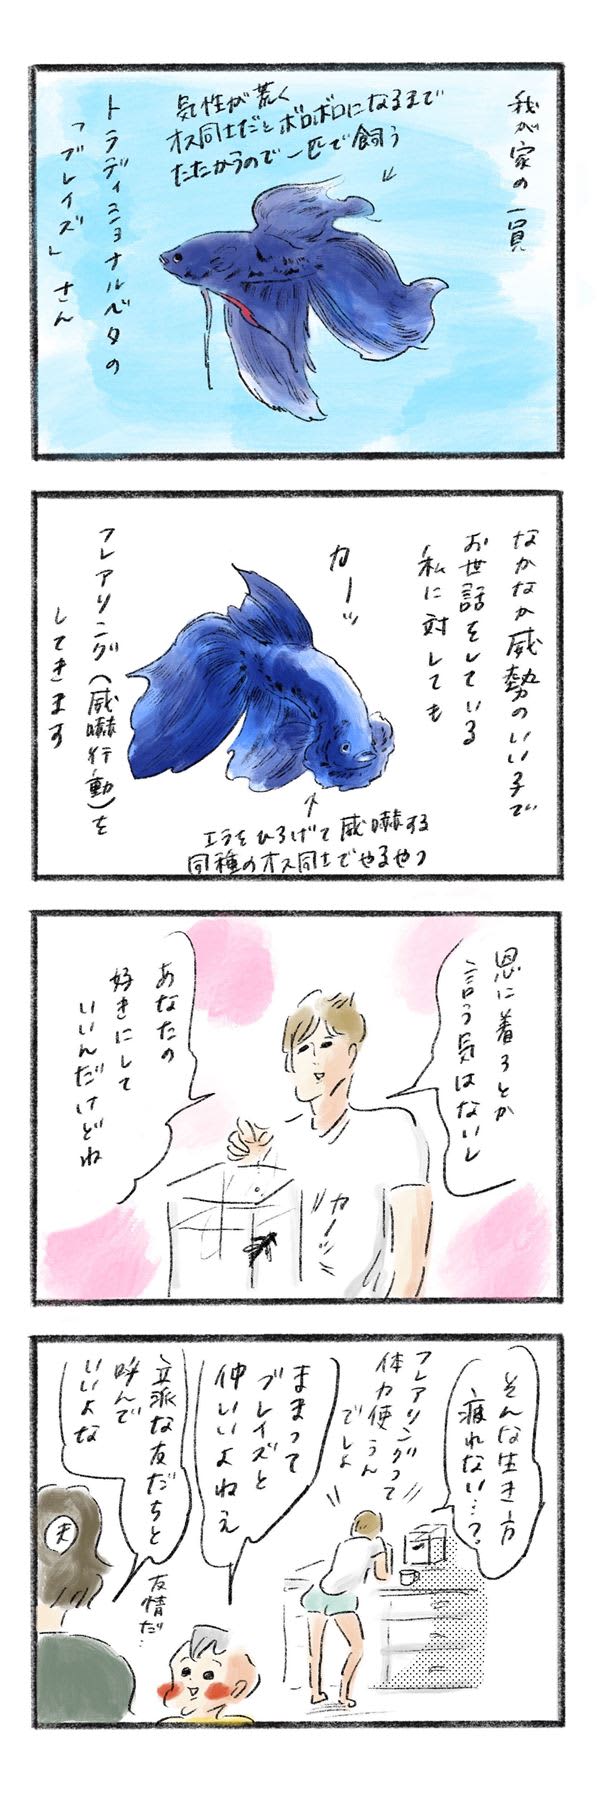 我が家の一員
気性が荒く
オス同士だとボロボロになるまで
たたかうので一匹で飼う
トラディショナルベタの
「ブレイズ」さん
なかなか威勢のいい子で
お世話をしている
私に対しても
カーッ
フレアリング(威嚇行動)を
してきます
エラをひろげて威嚇する
同種のオス同士でやるやつ
恩に着ろとか
言う気はないし
あなたの
好きにして
いいんだけどね
カーッ
そんな生き方
疲れない…?
フレアリングって
体力使うん
でしょ
ままって
ブレイズと
仲いいよねぇ
立派な友だちと
呼んで
いいよな
友情だ…
夫